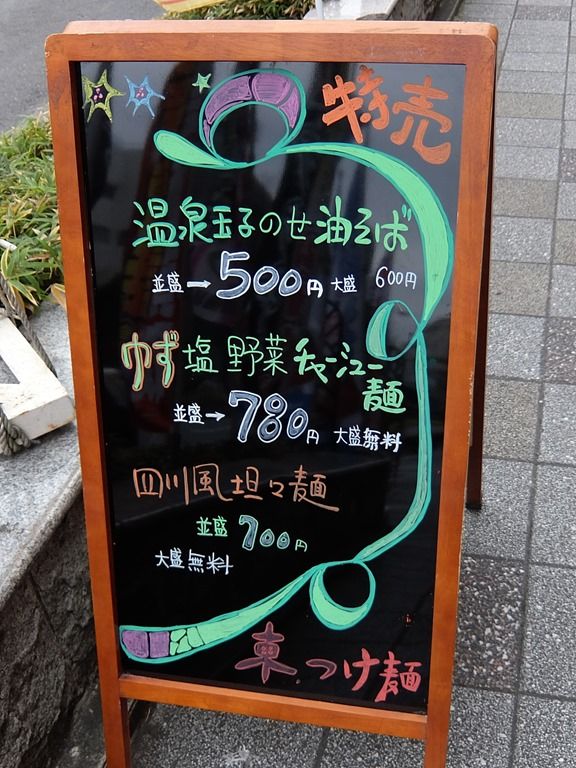 特売
温泉玉子のせ油そば
並盛→500円 大盛 600円
ゆず塩野菜チャーシュー
麺
並盛→780円 大盛無料
四川風坦々麺
並盛 700円
大盛無料
東.つけ麺